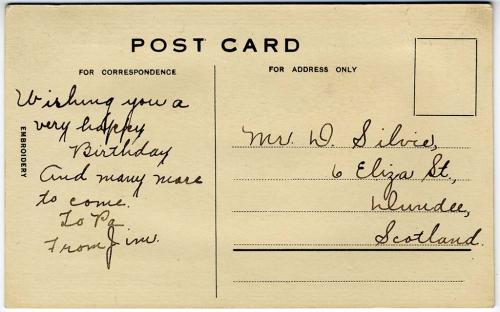 POST CARD
FOR CORRESPONDENCE
FOR ADDRESS ONLY
EMBROIDERY
Wishing you a
very happy
Birthday
And many more
to come.
To Pa
From Jim.
Mr. D. Silvie,
6 Eliza St.,
Dundee,
Scotland.